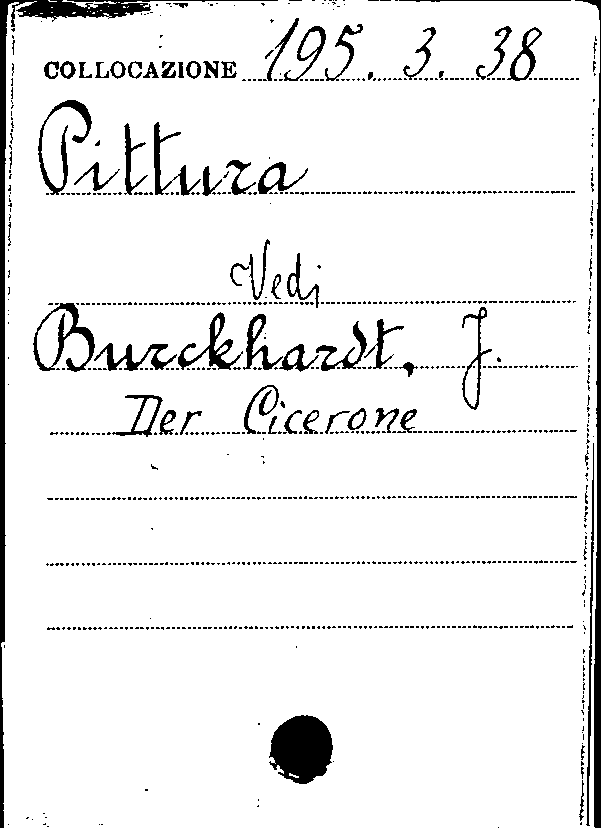 COLLOCAZIONE 195. 3. 38
Pittura
Vedi
Burckhardt, J.
Der Cicerone